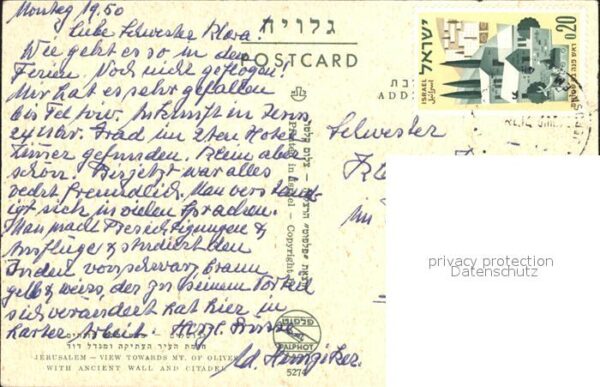 Montag 19.50
Liebe Schwester Klara
Wie geht es so in den
Ferien. Noch nicht geflogen!
Mir hat es sehr gefallen
bis Tel Aviv. Ankunft in Jerus
Grad im 2ten Hotel
Zimer gefunden. Klein aber
schön. Bis jetzt war alles
recht freundlich. Man verständ
igt sich in vielen Sprachen.
Man macht Besichtigungen &
Ausflüge & studiert den
Juden von schwarz, braun
gelb & weiss, der zu seinem Vorteil
sich verändert hat hier in
harter Arbeit. Herzl. Grüsse
גלויה
POSTCARD
ADD
ישראל
ISRAEL
اسرائيل
0.20
Schwester
Printed in Israel - Copyright
PALPHOT
5274
חומת העיר העתיקה ומגדל דוד
JERUSALEM - VIEW TOWARDS MT. OF OLIVES
WITH ANCIENT WALL AND CITADEL
privacy protection
Datenschutz